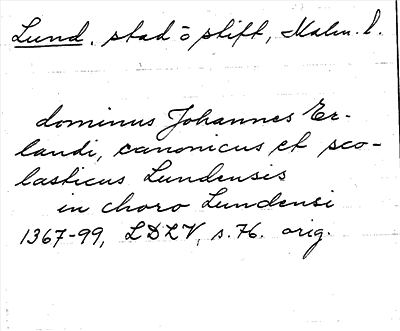 Lund, stad o stift, Malm. l.
dominus Johannes Er-
landi, canonicus et sco-
lasticus Lundensis
in choro Lundensi
1367-99, LDLV, s. 76. orig.